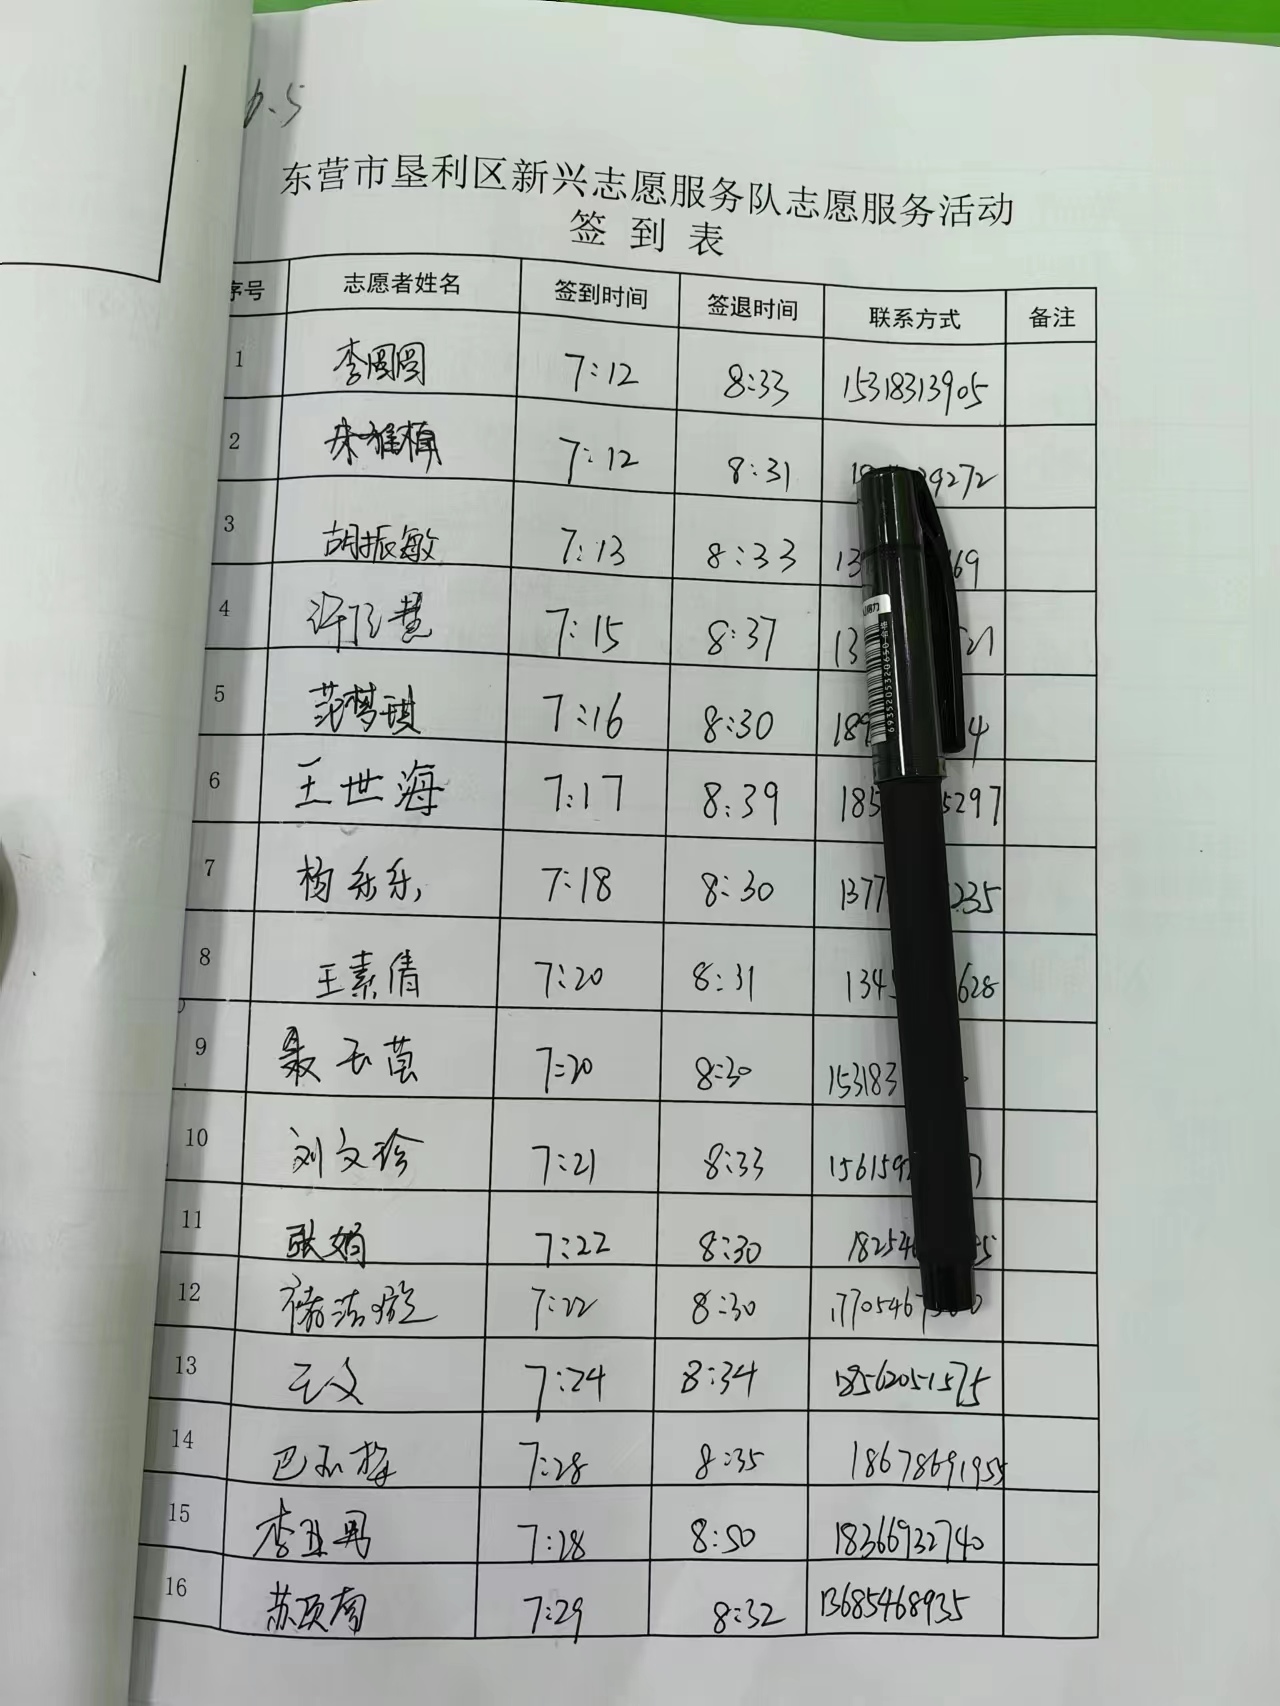 6.5
东营市垦利区新兴志愿服务队志愿服务活动
签到表
序号 志愿者姓名 签到时间 签退时间 联系方式 备注
1 李圆圆 7:12 8:33 15318313905
2 7:12 8:31 9272
3 胡振敏 7:13 8:33 13 69
4 许 慧 7:15 8:37 13 21
5 范梦琪 7:16 8:30 189 4
6 王世海 7:17 8:39 185 5297
7 杨乐乐 7:18 8:30 1377 235
8 王素倩 7:20 8:31 134 628
9 聂玉苗 7:20 8:30 153183
10 刘文珍 7:21 8:33 156159
11 张娟 7:22 8:30 18254 95
12 7:22 8:30 1770546 0
13 王文 7:24 8:34 18562051575
14 巴 梅 7:28 8:35 18678691955
15 李亚男 7:28 8:50 18366932740
16 苏 南 7:29 8:32 13685468935
6935205320650